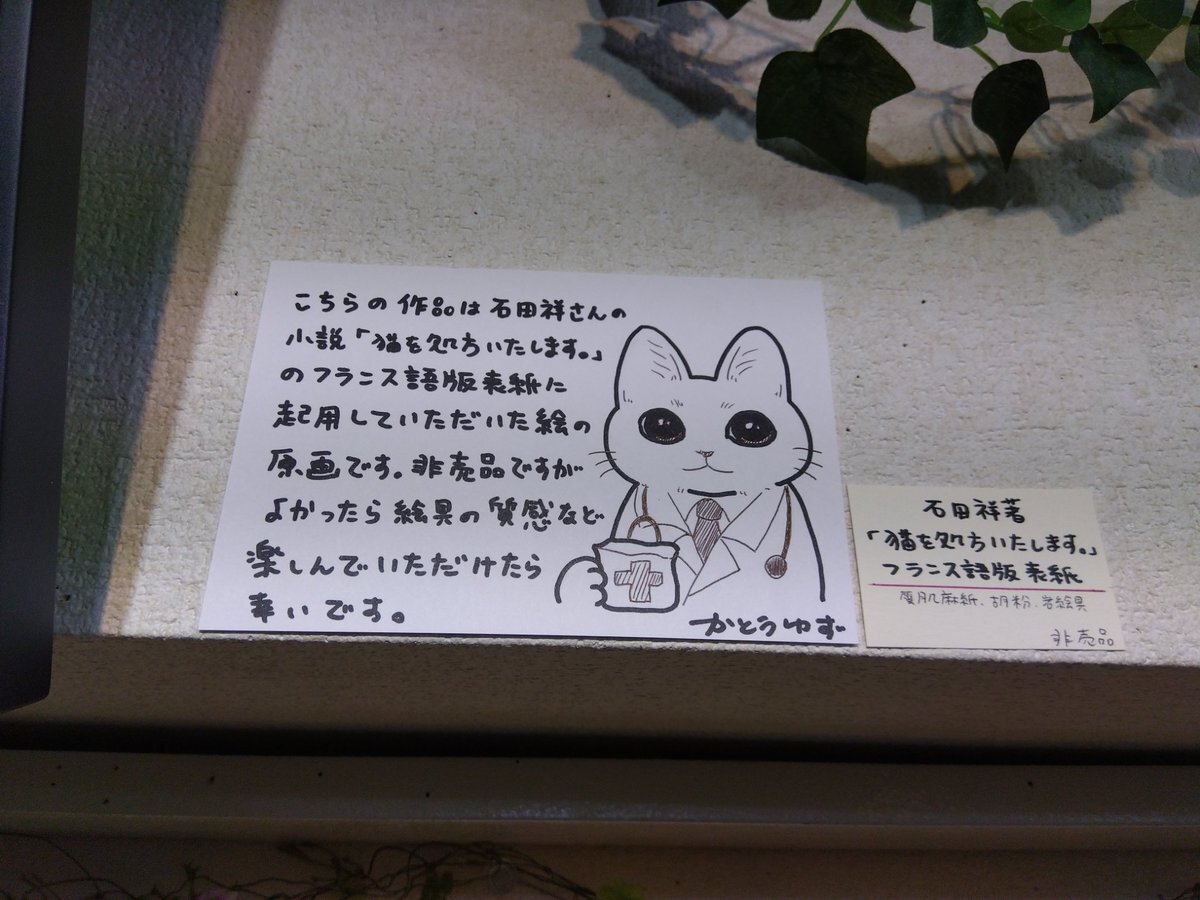 こちらの作品は石田祥さんの
小説「猫を処方いたします。」
のフランス語版表紙に
起用していただいた絵の
原画です。非売品ですが
よかったら絵具の質感など
楽しんでいただけたら
幸いです。
かとうゆず
石田祥著
「猫を処方いたします。」
フランス語版表紙
雲肌麻紙、胡粉、岩絵具
非売品